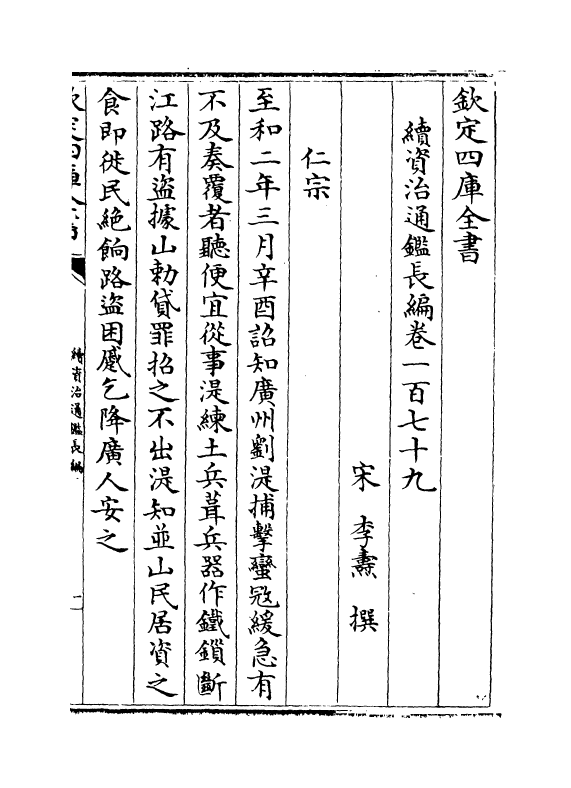 欽定四庫全書
續資治通鑑長編卷一百七十九
宋 李燾 撰
仁宗
至和二年三月辛酉詔知廣州劉湜捕擊蠻冦緩急有
不及奏覆者聽便宜從事湜練土兵葺兵器作鐵鎖斷
江路有盜據山勅貸罪招之不出湜知並山民居資之
食即徙民絶餉路盜困蹙乞降廣人安之
欽定四庫全書
續資治通鑑長編